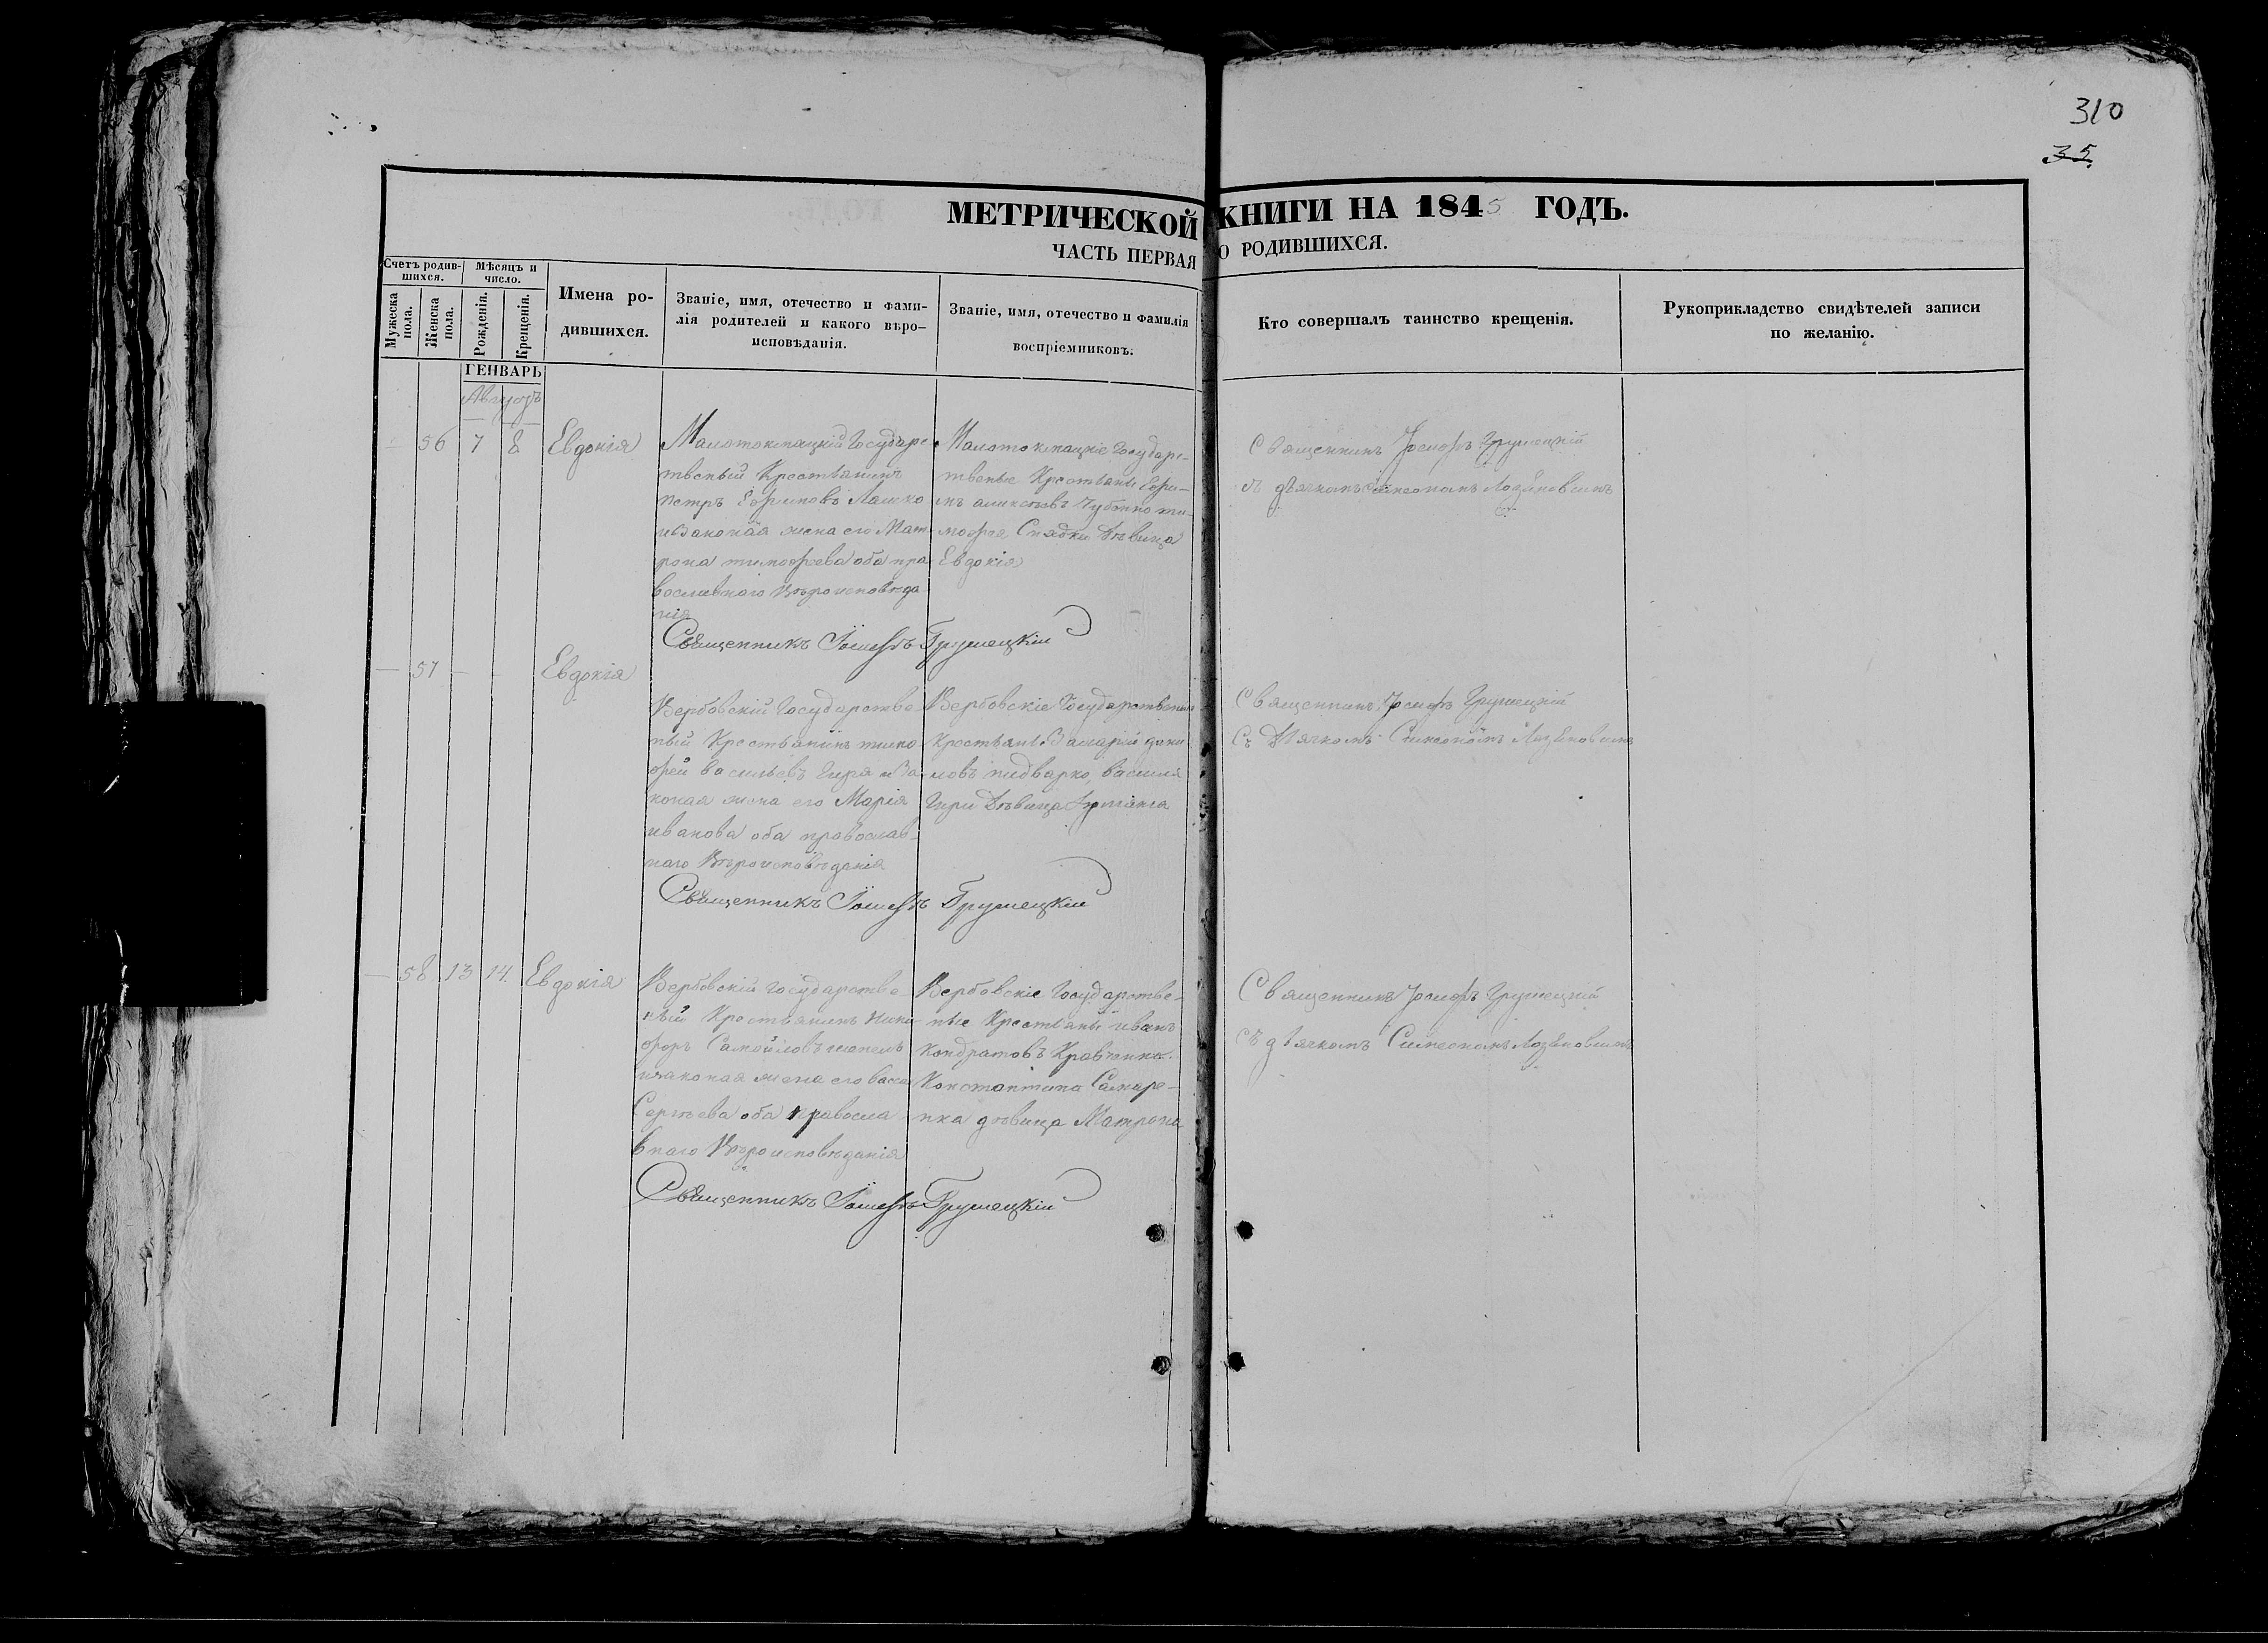 310
35.
МЕТРИЧЕСКОЙ КНИГИ НА 1845 ГОДЪ.
ЧАСТЬ ПЕРВАЯ О РОДИВШИХСЯ.
Счетъ родив-
шихся.
Мужеска
пола.
Женска
пола.
Мѣсяцъ и
число.
Рожденія.
Крещенія.
Имена ро-
дившихся.
Званіе, имя, отечество и фами-
лія родителей и какого вѣро-
исповѣданія.
Званіе, имя, отечество и фамилія
воспріемниковъ.
Кто совершалъ таинство крещенія.
Рукоприкладство свидѣтелей записи
по желанію.
ГЕНВАРЬ
Августъ
56 7 8 Евдокія
Государс
твеный Крестьянинъ
Петръ Ефимовъ Лашко
изаконая жена его Мат
рона тимофеева оба пра
вославнаго Вѣроисповѣда
нія
Государс-
твеные Крестьяне Ефи-
мъ ти-
мофея Дѣвица
Евдокія
Священникъ Іосифъ Грушецкій
съ дьячкомъ Симеономъ
Священникъ Іосифъ Грушецкій
57 Евдокія
Вербовскій Государстве
ный Крестьянинъ тимо
фей васильевъ Гиря иза
коная жена его Марія
иванова оба православ-
наго Вѣроисповѣданія
Вербовскіе Государственые
Крестьяне дани
ловъ василя
Гири Дѣвица
Священникъ Іосифъ Грушецкій
Съ Дьячкомъ Симеономъ
Священникъ Іосифъ Грушецкій
58 13 14. Евдокія
Вербовскій Государстве
ный Крестьянинъ Ники
форъ Самойловъ
изаконая жена его васса
Сергѣева оба правосла
внаго Вѣроисповѣданія
Вербовскіе Государстве-
ные Крестьяне иванъ
Кондратовъ Кравченко.
Константина
нка дѣвица Матрона
Священникъ Іосифъ Грушецкій
съ дьячкомъ Симеономъ
Священникъ Іосифъ Грушецкій